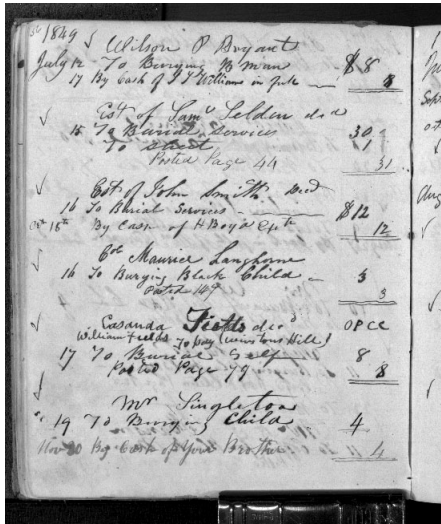 1849 Wilson P Bryant
July 12 To Burying B man $8
17 By Cash of J T Williams in full 8
Est of Sam Selden decd
15 To Burial Services 30
To street 1
Posted Page 44
31
Est of John Smith decd
16 To Burial Services $12
Oct 18th By Cash of H Boyd 12
Col Maurice Langhorne
16 To Burying Black Child 3
Posted 149
3
Casanda Fields decd OPCC
William Fields to pay (Winstons Hill)
17 To Burial Self 8
Posted Page 79 8
Mr Singleton
19 To Burying Child 4
Nov 20 By Cash of Your Brother 4